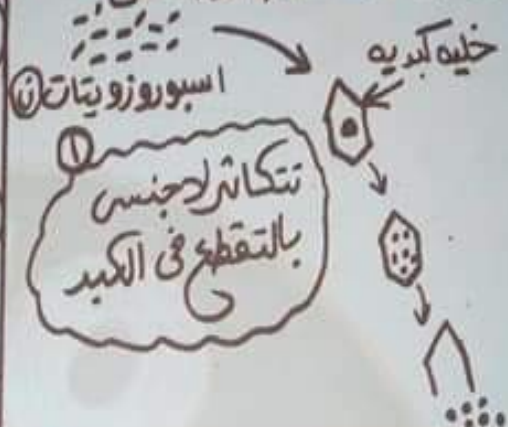 خليه كبديه
اسبوروزويتات (ن)
١
تتكاثر لاجنسى
بالتقطع فى الكبد